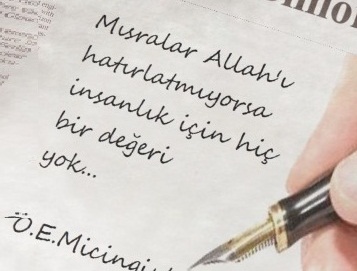 Mısralar Allah'ı
hatırlatmıyorsa
insanlık için hiç
bir değeri
yok...